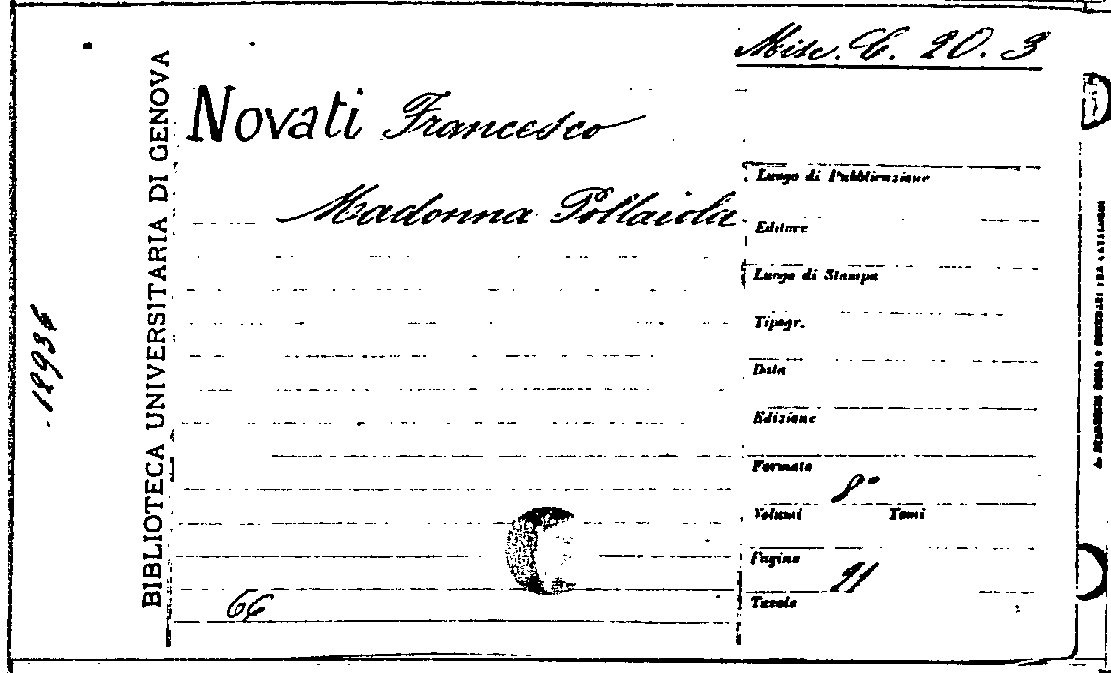 Misc. C. 20. 3
BIBLIOTECA UNIVERSITARIA DI GENOVA
Novati Francesco
Madonna Pollaiola
Luogo di Pubblicazione
Editore
Luogo di Stampa
Tipogr.
Data
Edizione
Formato 8°
Volumi Tomi
Pagine 21
Tavole
66